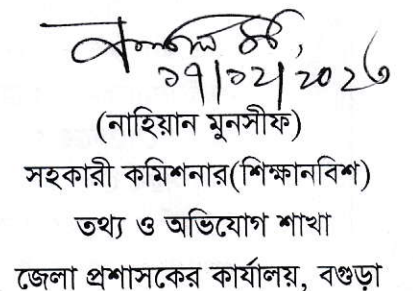 ১৭/১২/২০২৩
(নাহিয়ান মুনসীফ)
সহকারী কমিশনার(শিক্ষানবিশ)
তথ্য ও অভিযোগ শাখা
জেলা প্রশাসকের কার্যালয়, বগুড়া